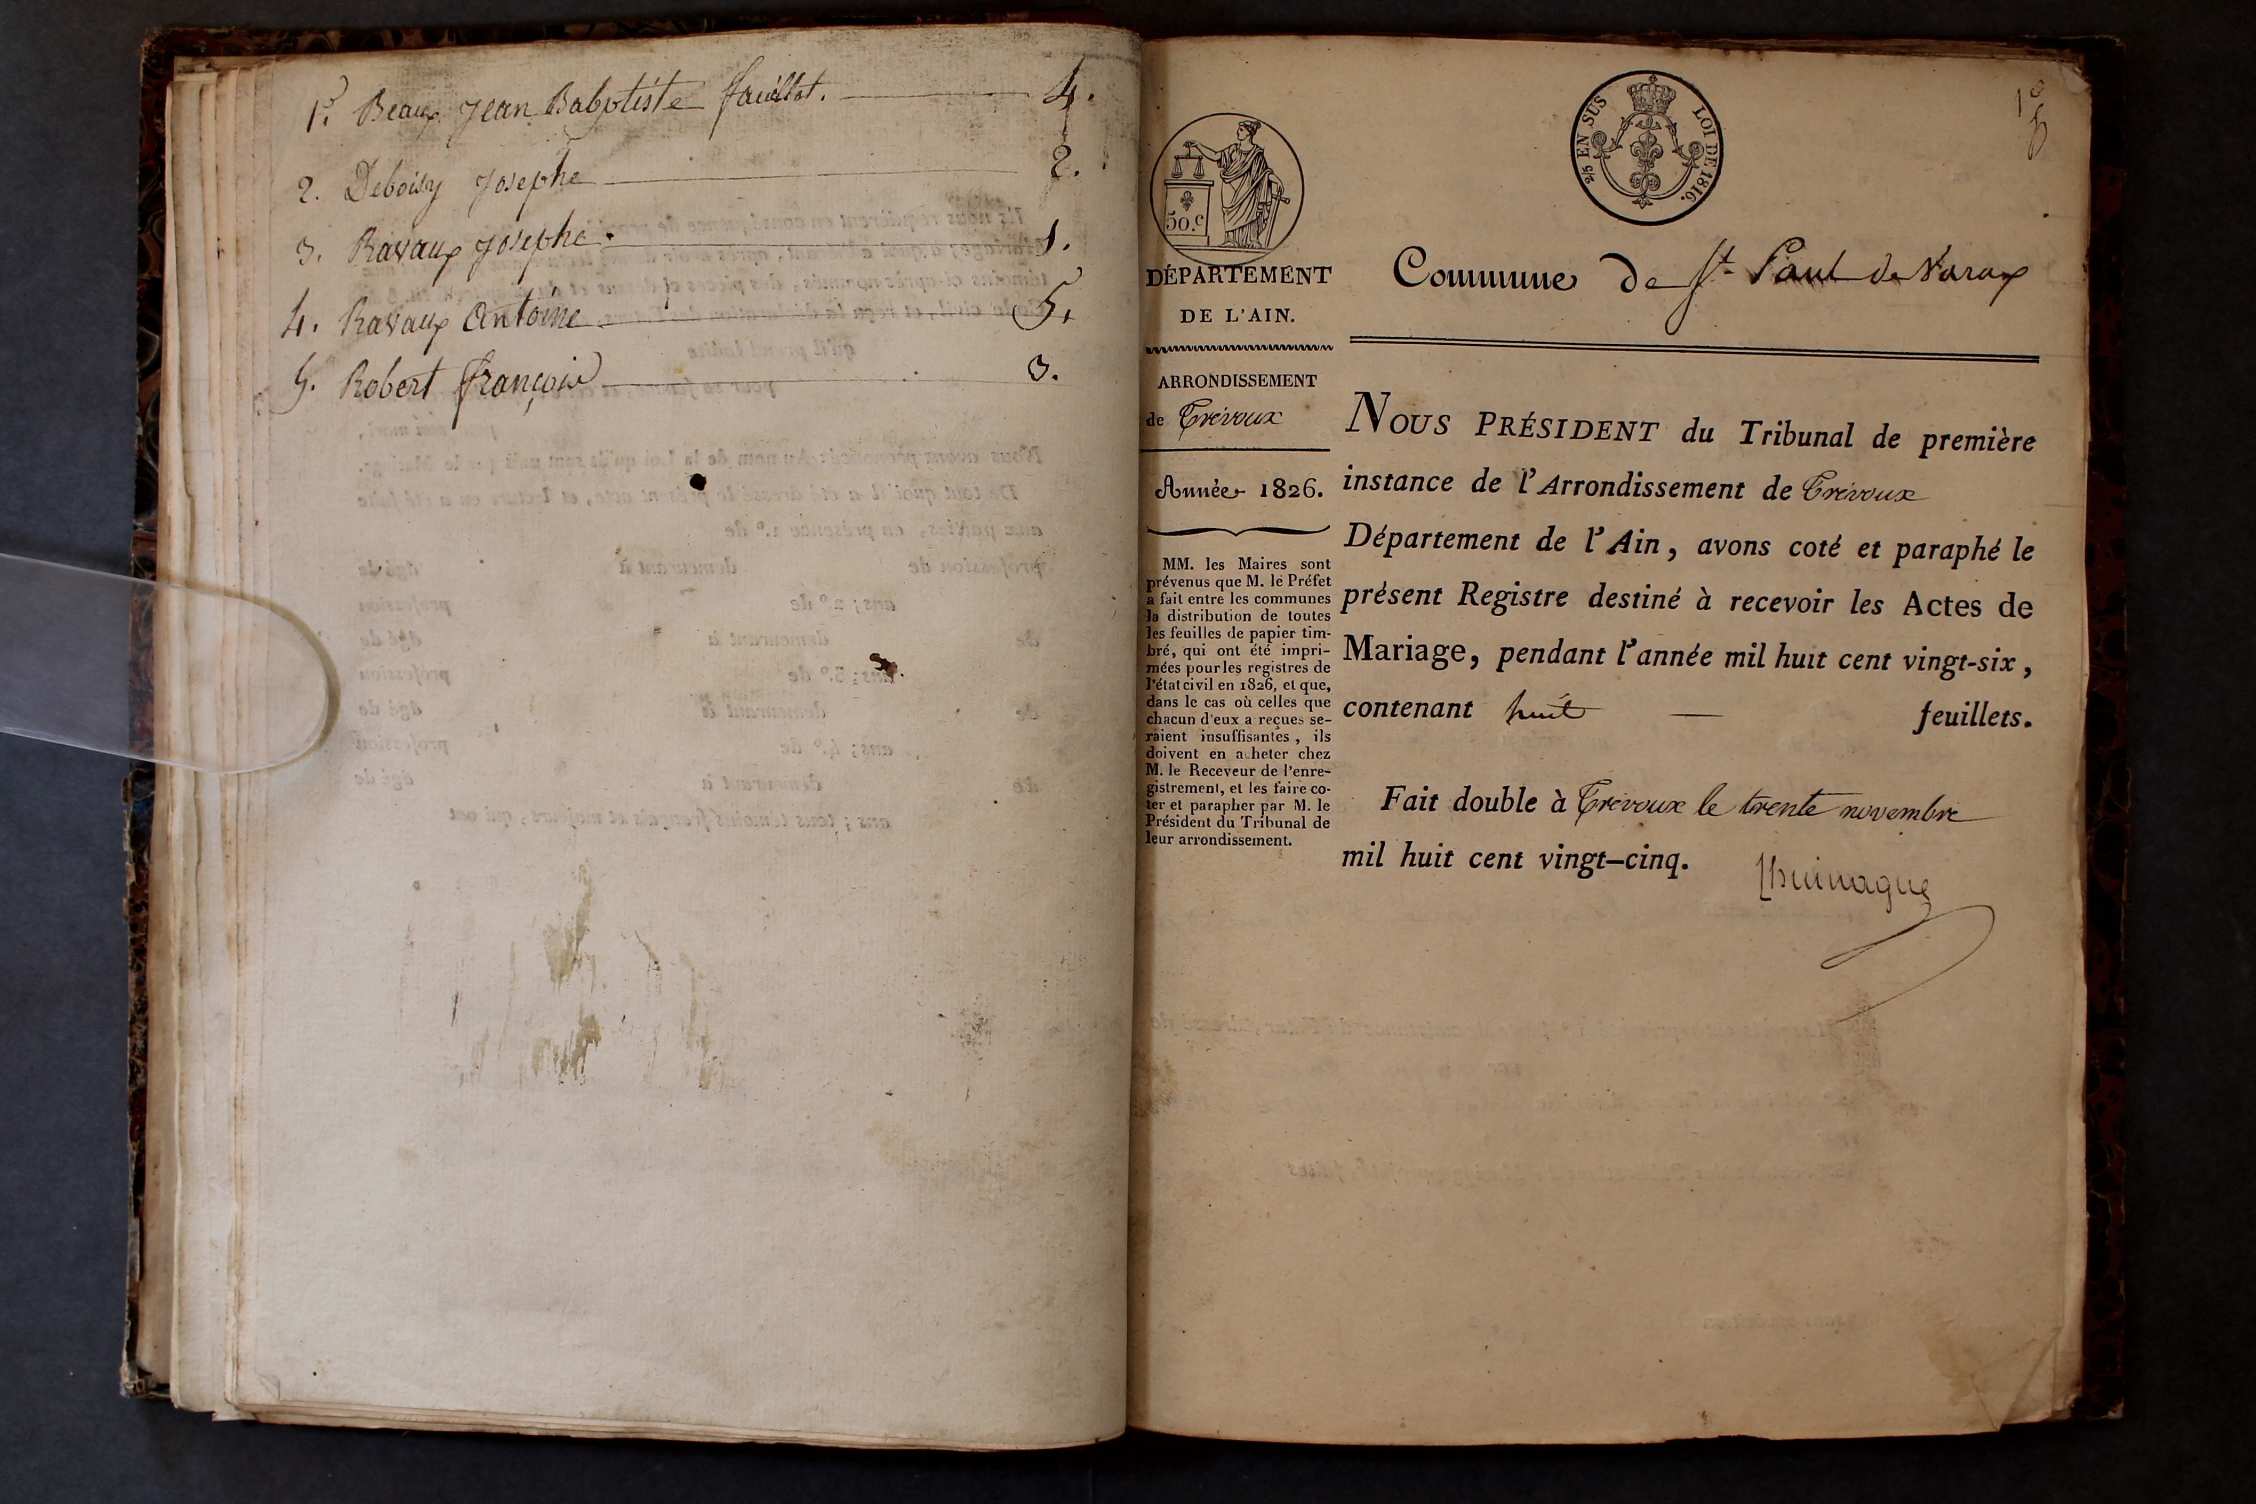 1º. Beaux Jean Babptiste feuillet. 4.
2. Deboisy Josephe 2.
3. Ravaux Josephe. 1.
4. Ravaux Antoine 5.
5. Robert françois 3.
50.C
2/5 EN SUS
LOI DE 1816.
DÉPARTEMENT
DE L'AIN.
ARRONDISSEMENT
de Trévoux
Année 1826.
MM. les Maires sont
prévenus que M. le Préfet
a fait entre les communes
la distribution de toutes
les feuilles de papier tim-
bré, qui ont été impri-
mées pour les registres de
l'état civil en 1826, et que,
dans le cas où celles que
chacun d'eux a reçues se-
raient insuffisantes, ils
doivent en acheter chez
M. le Receveur de l'enre-
gistrement, et les faire co-
ter et parapher par M. le
Président du Tribunal de
leur arrondissement.
Commune de St. Paul de Varax
NOUS PRÉSIDENT du Tribunal de première
instance de l'Arrondissement de Trévoux
Département de l'Ain, avons coté et paraphé le
présent Registre destiné à recevoir les Actes de
Mariage, pendant l'année mil huit cent vingt-six,
contenant huit feuillets.
Fait double à Trévoux le trente novembre
mil huit cent vingt-cinq.